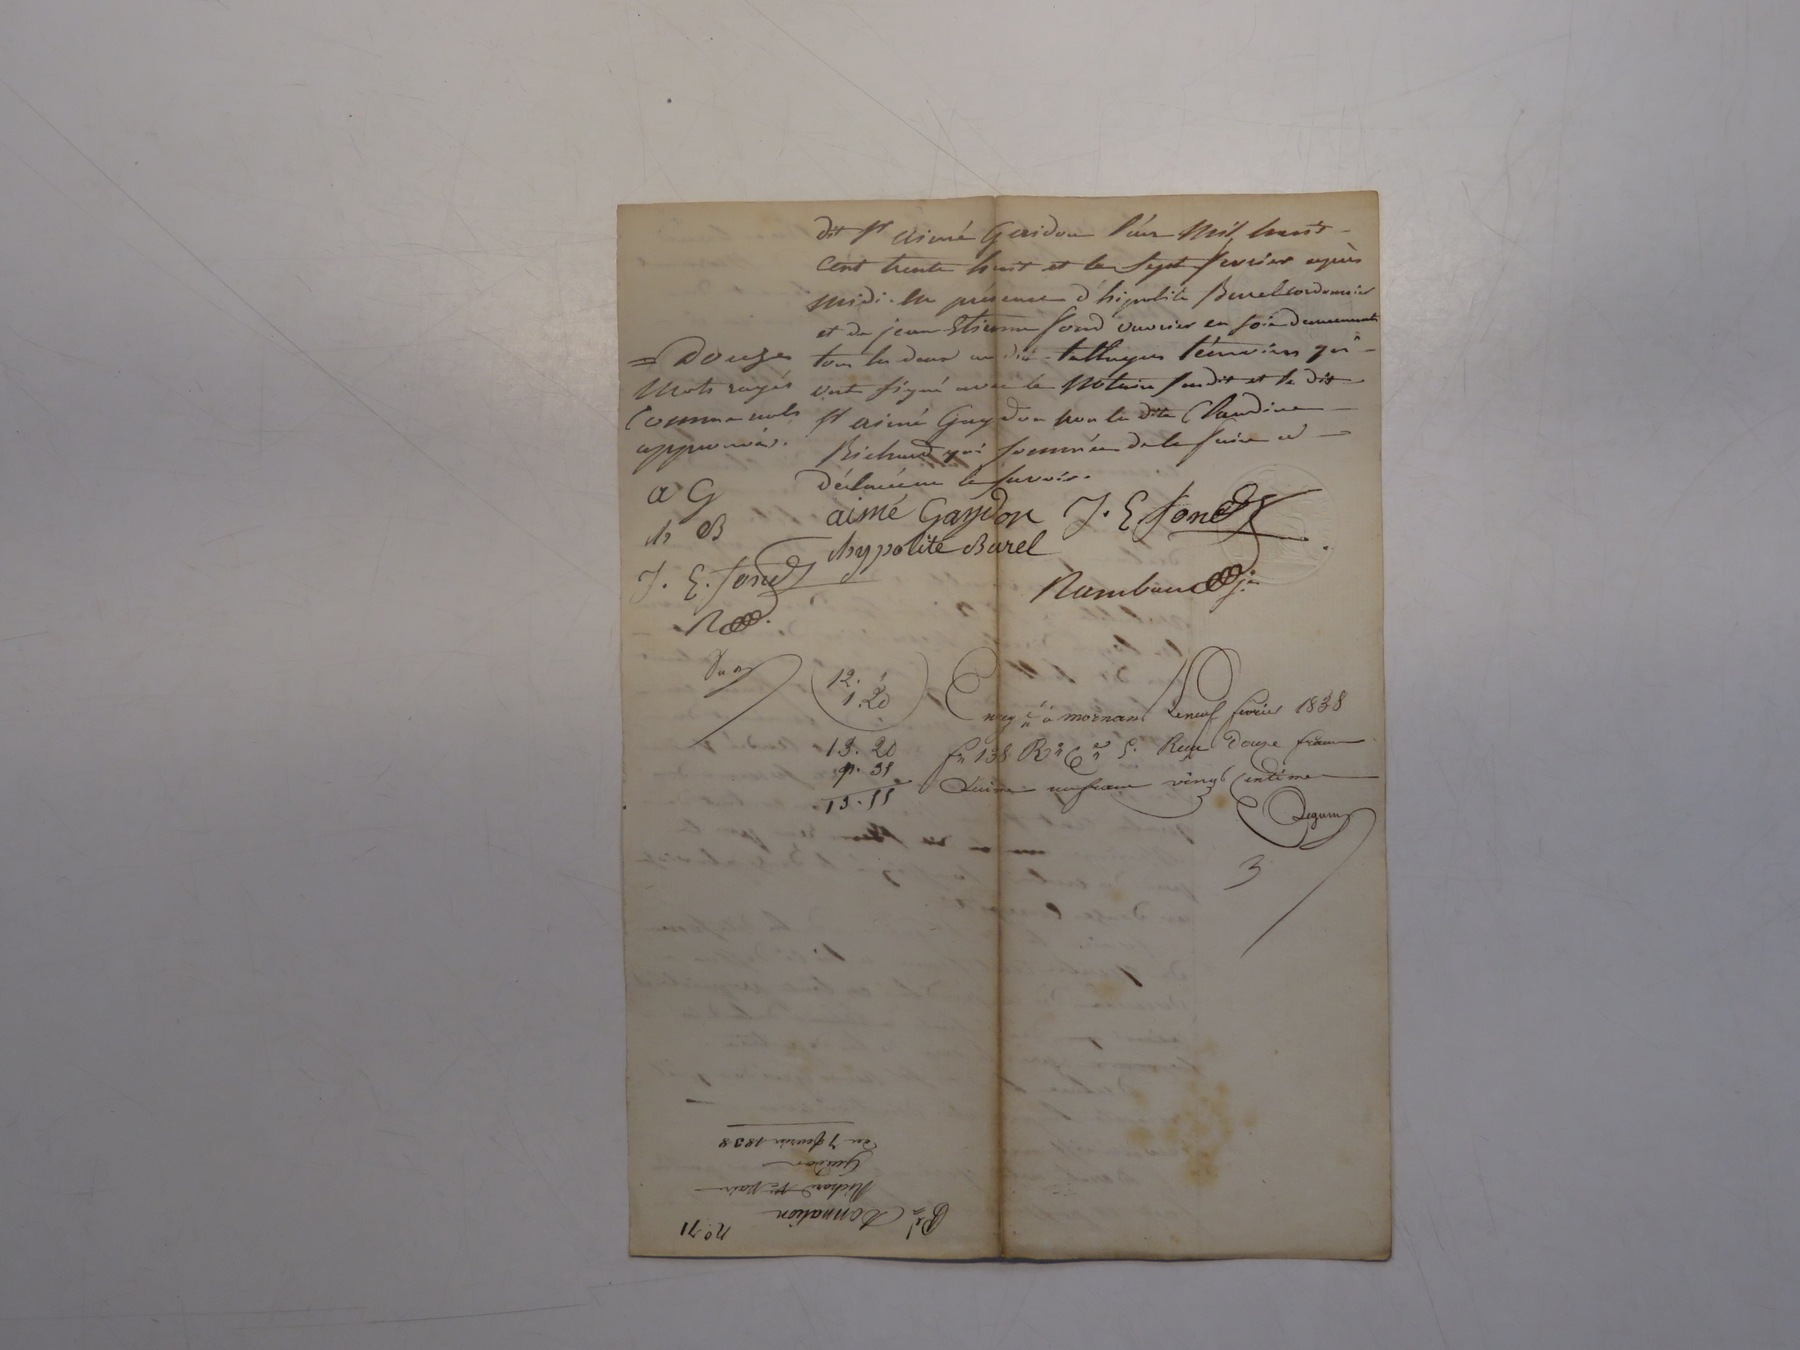 dit Sr aimé Gaidon l'an Mil huit
cent trente huit et le sept fevrier après
midi. En présence d'hipolite Burel cordonnier
et de jean Etienne fond ouvrier en soie demeurants
tous les deux au dit talluyers témoins qui
ont signé avec le Notaire susdit et le dit
Sr aimé Gaydon non la dite Claudine
Richard qui sommée de le faire a
déclaré ne le savoir.
= Douze
Mots rayés
Comme nuls
approuvés.
a G
h B
J. E. fond
R
aimé Gaydon J. E. fond
hyppolite Burel
Rambaud jne
12.
1.20
13. 20
35
Enreg à mornant Leneuf fevrier 1838
fo 138 Ro Co 5. Reçu Douze francs
Décime un franc vingt Centimes
3
no. 71
Donnation
Richard
Guidon
du 7 fevrier 1838